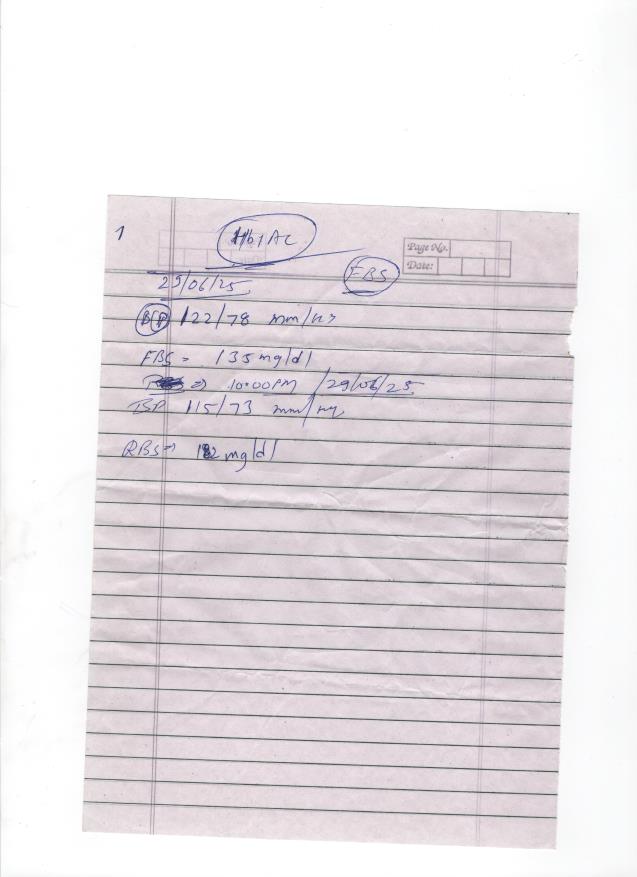 1
HbIAC
Page No.
Date:
FBS
29/06/25
BP 122/78 mm/Hg
FBS = 135 mg/dl
⇒ 10:00 PM / 29/06/25
BP 115/73 mm/Hg
RBS ⇒ 182 mg/dl